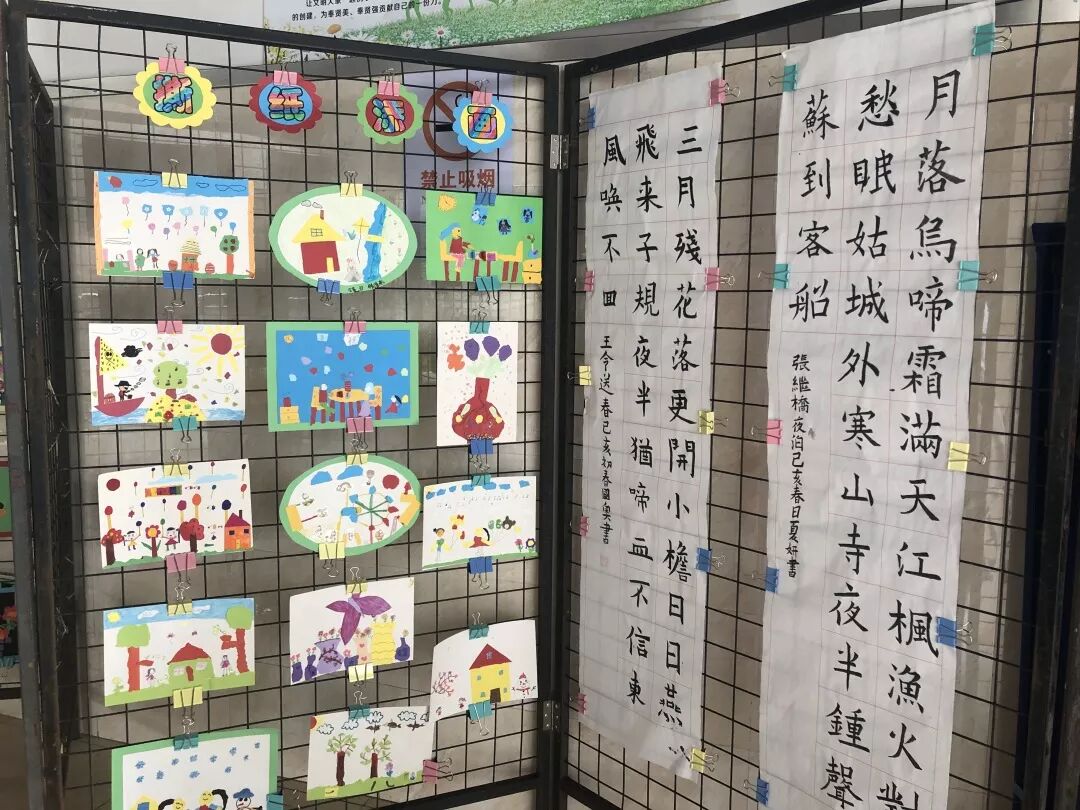 的创建，为奉贤美、奉贤强贡献自己的一份力。
撕纸添画
禁止吸烟
三月殘花落更開小檐日日燕
飛来子規夜半猶啼血不信東
風唤不回
王令送春己亥初春國奥書
月落烏啼霜滿天江楓漁火對
愁眠姑城外寒山寺夜半鍾聲
蘇到客船
張繼橋夜泊己亥春日夏妍書